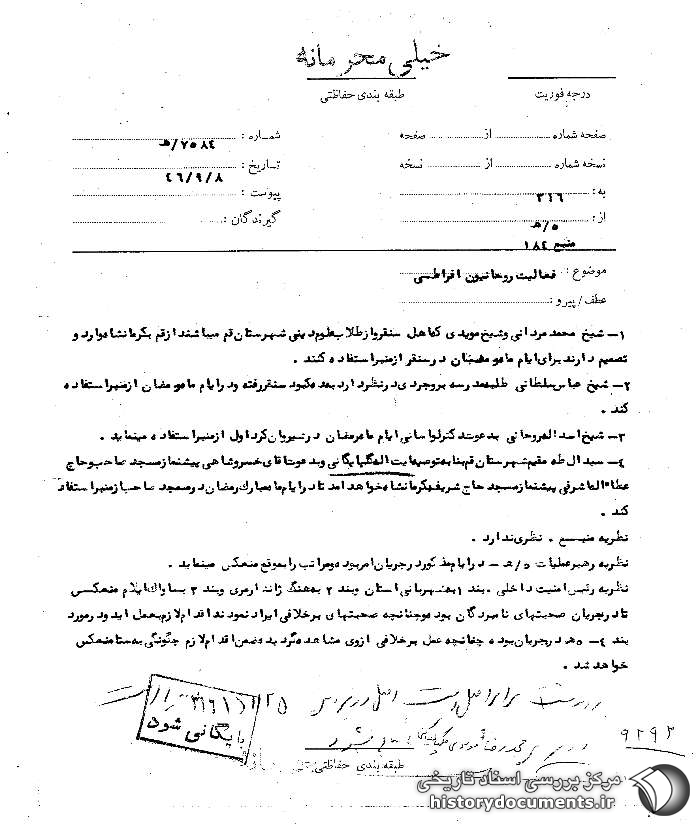 خیلی محرمانه
درجه فوریت
طبقه بندی حفاظتی
صفحه شماره از صفحه
شماره : ۷۵۸۴/ه
نسخه شماره از نسخه
تاریخ : ٤٦/٩/٨
به : ۳۱٦
پیوست :
از : ۵/ه
گیرندگان :
منبع ۱۸٤
موضوع : فعالیت روحانیون افراطی
عطف/پیرو :
۱- شیخ محمد مردانی و شیخ مویدی که اهل سنقر و از طلاب علوم دینی شهرستان قم میباشند از قم بکرمانشاه وارد و
تصمیم دارند برای ایام ماه رمضان در سنقر از منبر استفاده کنند .
۲- شیخ عباس سلطانی طلبه مدرسه بروجردی در نظر دارد بعدهکبود سنقر رفته و در ایام ماه رمضان از منبر استفاده
کند .
۳- شیخ اسداله روحانی بدعوت دکتر لواسانی ایام ماه رمضان در شیروان کرد اول از منبر استفاده مینماید .
٤- سید ال طه مقیم شهرستان قم بنا به توصیه ایت اله گلپایگانی و بدعوت اقای خسروشاهی پیشنماز مسجد صاحب و حاج
عطاءاله اشرفی پیشنماز مسجد حاج شریف بکرمانشاه خواهد امد تا در ایام ماه مبارک رمضان در مسجد صاحب از منبر استفاده
کند .
نظریه منبع . نظری ندارد .
نظریه رهبر عملیات ۵/ه - در ایام مذکور در جریان امر بوده و مراتب را بموقع منعکس مینماید .
نظریه رئیس امنیت داخلی . بند ۱ بشهربانی استان و بند ۲ به هنگ ژاندارمری و بند ۳ بساواک ایلام منعکس
تا در جریان صحبتهای نامبردگان بوده و چنانچه صحبتهای برخلافی ایراد نمودند اقدام لازم بعمل اید و در مورد
بند ٤- ۵ه در جریان بوده چنانچه عمل برخلافی از وی مشاهده گردید ضمن اقدام لازم چگونگی به ستاد منعکس
خواهد شد .
در پرونده
۳۱٦
بایگانی شود
۹۲۹۲
طبقه بندی حفاظتی
مرکز بررسی اسناد تاریخی
historydocuments.ir